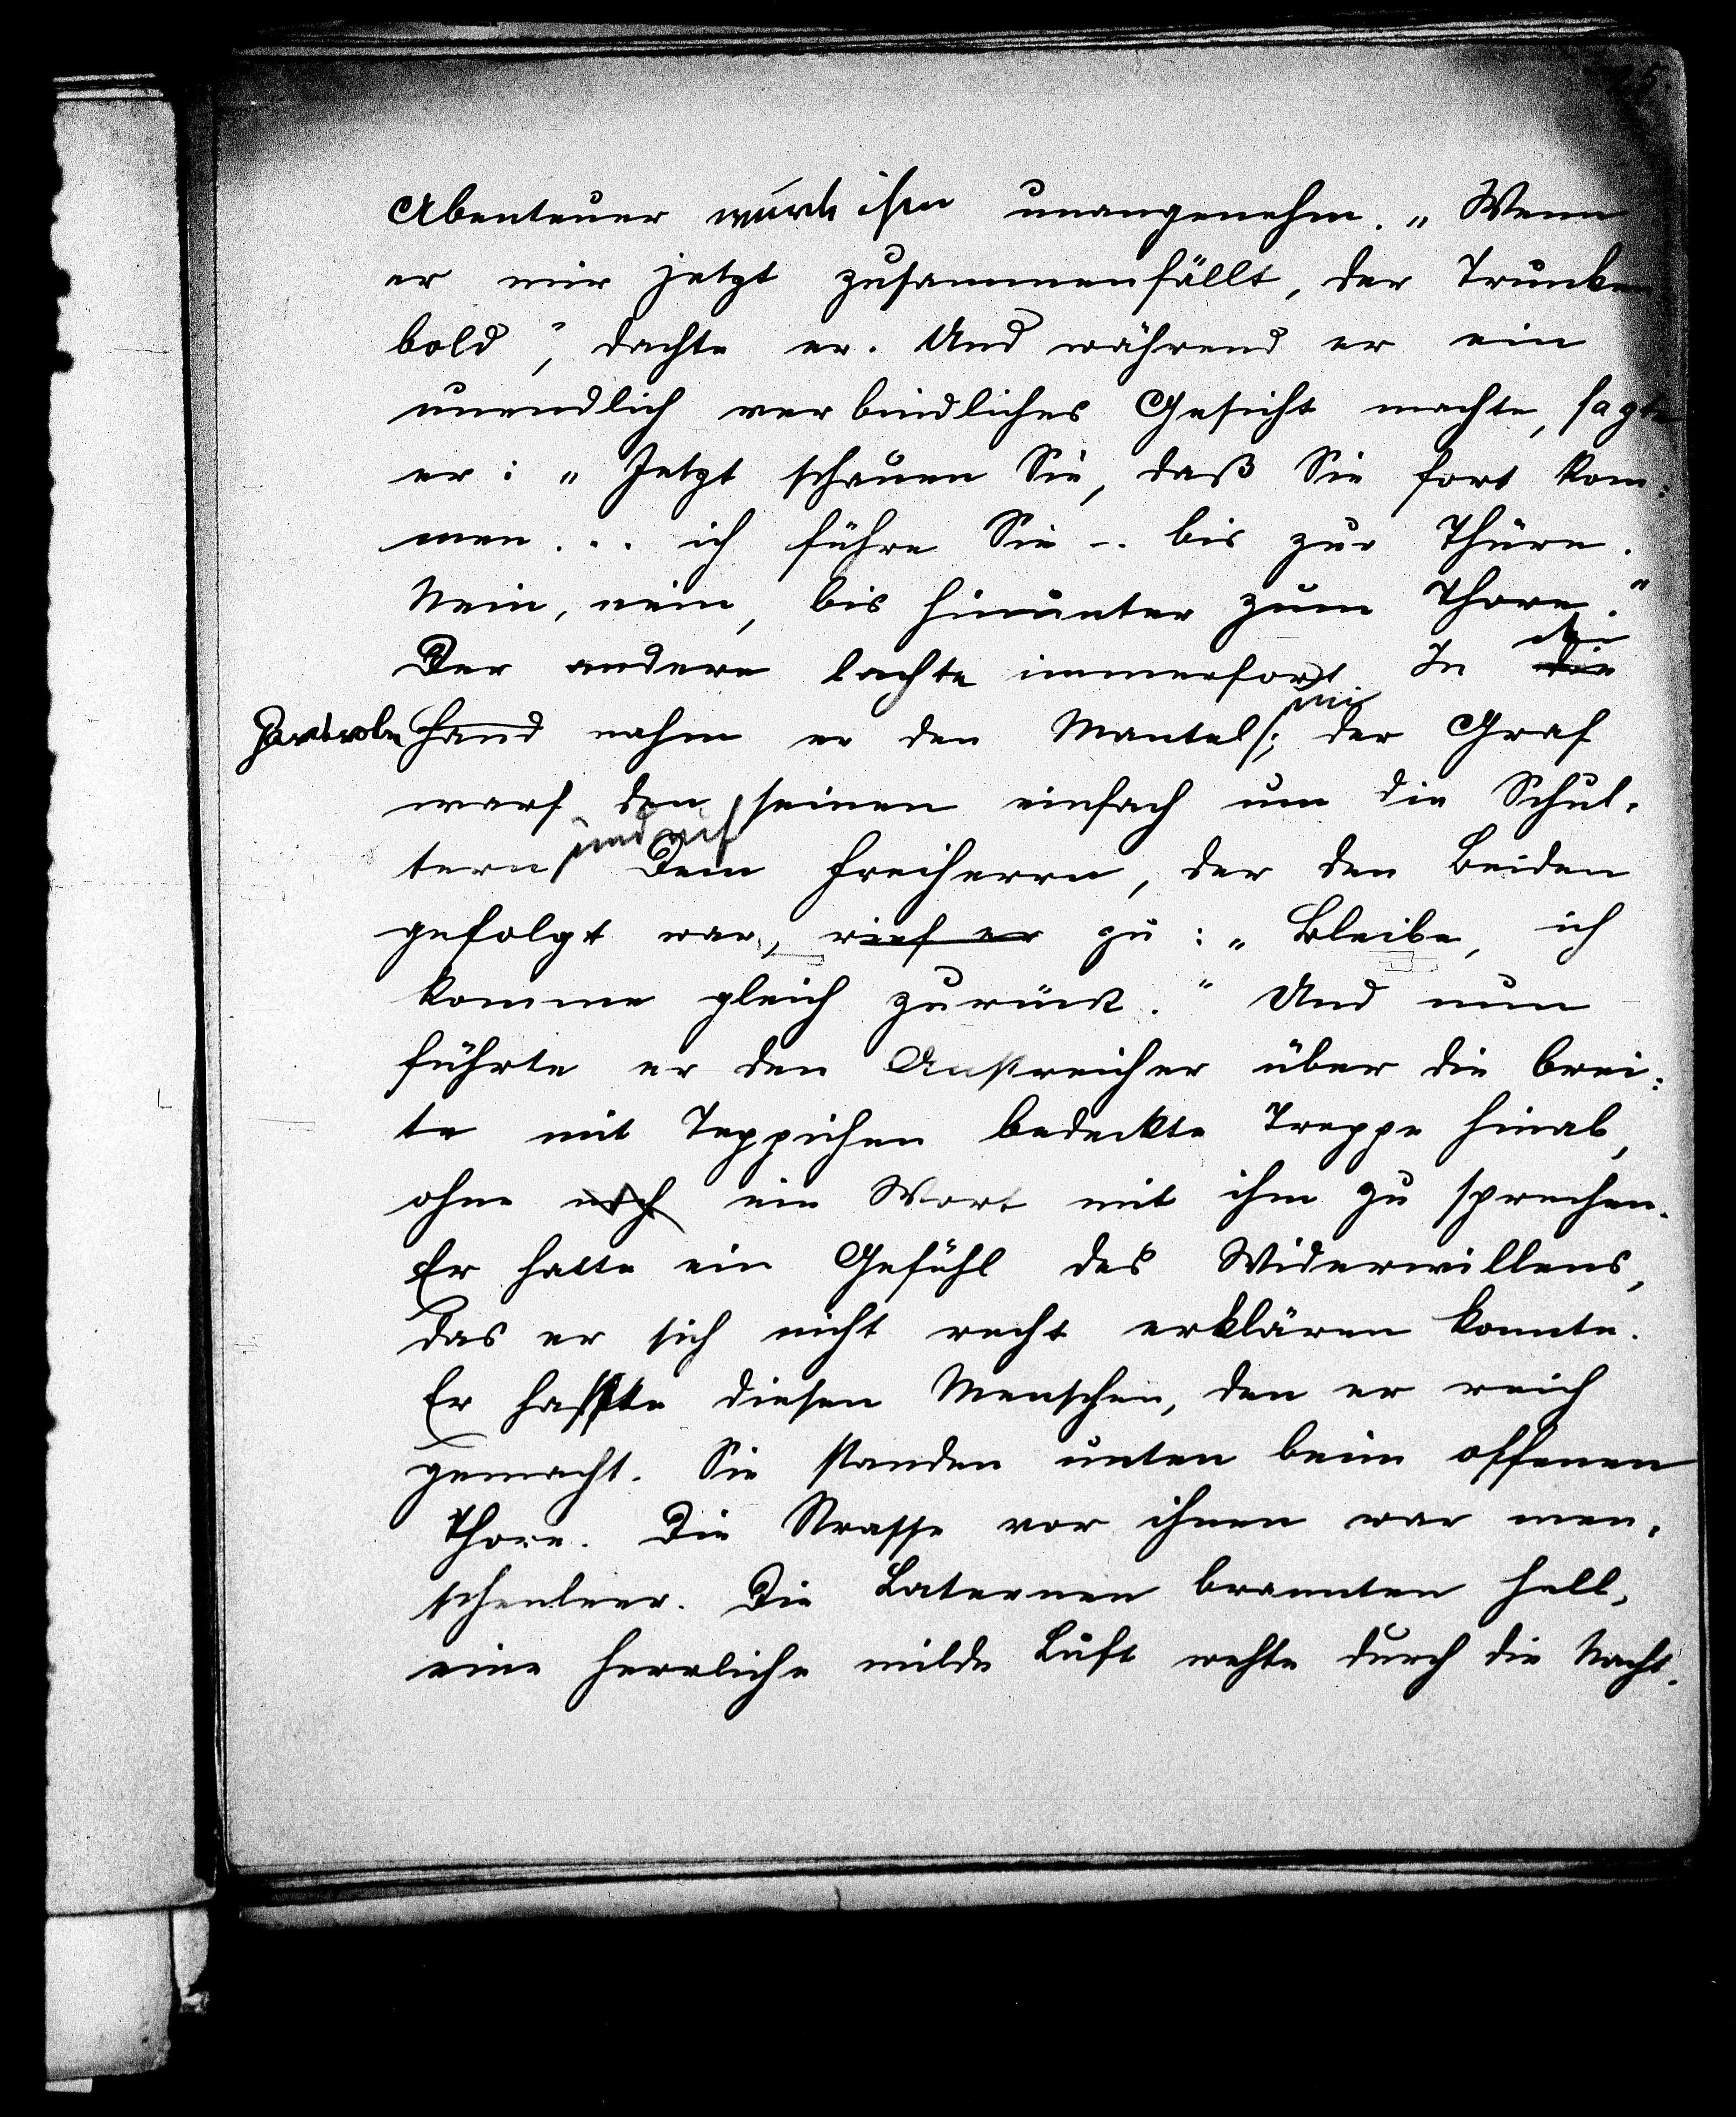 Abenteuer wurde ihm unangenehm. „Wenn
er mir jetzt zusammenfällt, der Trunken
bold", dachte er. Und während er ein
unendlich verbindliches Gesicht machte, sagte
er: „Jetzt schauen Sie, daß Sie fort kom:
men... ich führe Sie .. bis zur Thüre.
Nein, nein, bis hinunter zum Thore."
Der andere lachte immerfort. In der
die
Garderobe Hand nahm er den Mantel; der Graf
warf den seinen einfach um die Schul-
und rief
tern Dem Freiherrn, der den Beiden
gefolgt war, rief er zu: „Bleibe, ich
komme gleich zurück." Und nun
führte er den Anstreicher über die brei:
te mit Teppichen bedeckte Treppe hinab,
ohne noch ein Wort mit ihm zu sprechen.
Er hatte ein Gefühl des Widerwillens,
das er sich nicht recht erklären konnte.
Er hasste diesen Menschen, den er reich
gemacht. Sie standen unten beim offenen
Thore. Die Strasse vor ihnen war men-
schenleer. Die Laternen brannten hell,
eine herrliche milde Luft wehte durch die Nacht.